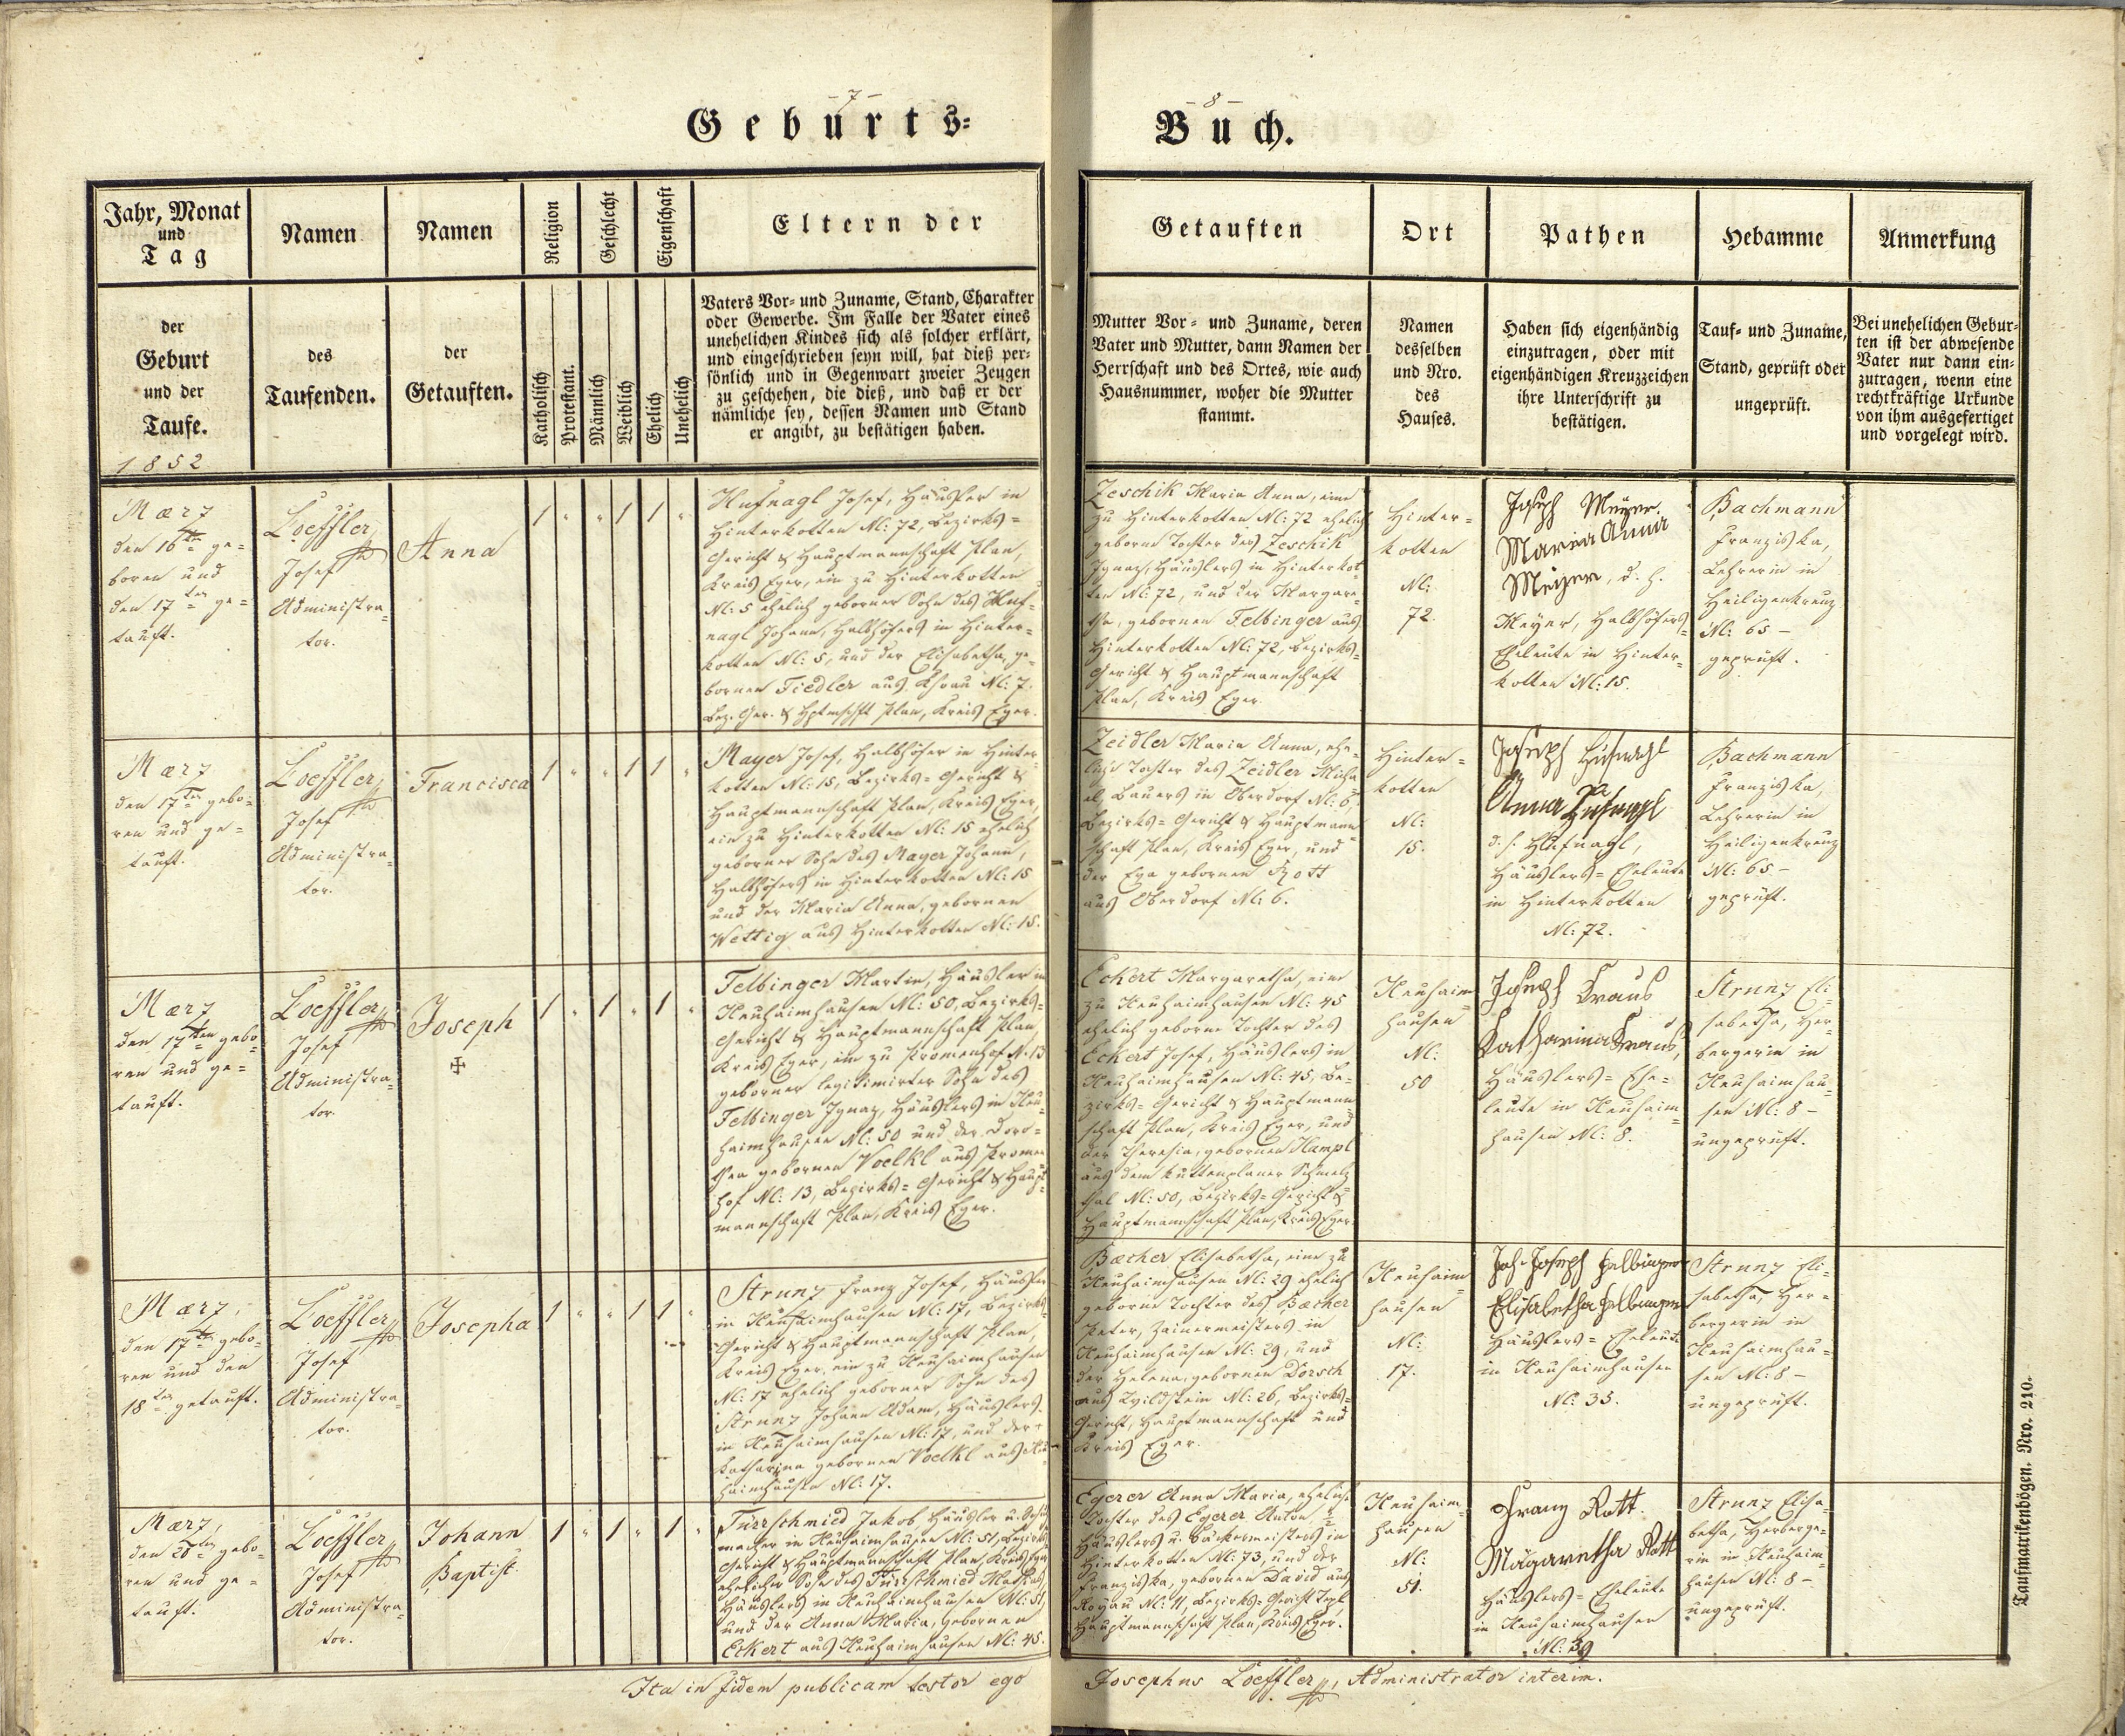 -7-
Geburts=
-8-
Buch.
Jahr, Monat
und
Tag
Namen
Namen
Religion
Geschlecht
Eigenschaft
Eltern der
Getauften
Ort
Pathen
Hebamme
Anmerkung
der
Geburt
und der
Taufe.
1852
des
Taufenden.
der
Getauften.
Katholisch
Protestant.
Männlich
Weiblich
Ehelich
Unehelich
Vaters Vor= und Zuname, Stand, Charakter
oder Gewerbe. Im Falle der Vater eines
unehelichen Kindes sich als solcher erklärt,
und eingeschrieben seyn will, hat dieß per=
sönlich und in Gegenwart zweier Zeugen
zu geschehen, die dieß, und daß er der
nämliche sey, dessen Namen und Stand
er angibt, zu bestätigen haben.
Mutter Vor= und Zuname, deren
Vater und Mutter, dann Namen der
Herrschaft und des Ortes, wie auch
Hausnummer, woher die Mutter
stammt.
Namen
desselben
und Nro.
des
Hauses.
Haben sich eigenhändig
einzutragen, oder mit
eigenhändigen Kreuzzeichen
ihre Unterschrift zu
bestätigen.
Tauf= und Zuname,
Stand, geprüft oder
ungeprüft.
Bei unehelichen Gebur=
ten ist der abwesende
Vater nur dann ein=
zutragen, wenn eine
rechtkräftige Urkunde
von ihm ausgefertiget
und vorgelegt wird.
Mærz
den 16te ge=
boren und
den 17ten ge=
tauft.
Loeffler
Josef
Administra=
tor.
Anna
1 " " 1 1 "
Hufnagl Josef, Häusler in
Hinterkotten N: 72, Bezirks=
Gericht & Hauptmannschaft Plan,
Kreis Eger, ein zu Hinterkotten
N: 5 ehelich geborner Sohn des Huf=
nagl Johann, Halbhöfers in Hinter=
kotten N: 5, und der Elisabetha, ge=
bornen Fiedler aus N: 7.
Bez. Ger. & Hptmschft Plan, Kreis Eger.
Zeschik Maria Anna, eine
zu Hinterkotten N: 72 ehelich
geborne Tochter des Zeschik
Ignaz, Häuslers in Hinterkot=
ten N: 72, und der Margare=
tha, gebornen Felbinger aus
Hinterkotten N: 72, Bezirks=
Gericht & Hauptmannschaft
Plan, Kreis Eger.
Hinter=
kotten
N:
72.
Joseph Meyer.
Maria Anna
Meyer, d. h.
Meyer, Halbhöfers=
Eheleute in Hinter=
kotten N: 15.
Bachmann
Franziska,
Lehrerin in
Heiligenkreuz
N: 65 –
geprüft.
Mærz
den 17ten gebo=
ren und ge=
tauft.
Loeffler
Josef
Administra=
tor.
Francisca
1 " " 1 1 "
Mayer Josef, Halbhöfer in Hinter=
kotten N: 15, Bezirks= Gericht &
Hauptmannschaft Plan, Kreis Eger,
ein zu Hinterkotten N: 15 ehelich
geborner Sohn des Mayer Johann,
Halbhöfers in Hinterkotten N: 15
und der Maria Anna, gebornen
Wettig aus Hinterkotten N: 15.
Zeidler Maria Anna, ehe=
liche Tochter des Zeidler Micha
el, Bauers in Oberdorf N: 6.
Bezirks= Gericht & Hauptmann
schaft Plan, Kreis Eger, und
der Eva gebornen Rott
aus Oberdorf N: 6.
Hinter=
kotten
N:
15.
Joseph Hufnagl
Anna Hufnagl
d. h. Hufnagl,
Häuslers= Eheleute
in Hinterkotten
N: 72.
Bachmann
Franziska,
Lehrerin in
Heiligenkreuz
N: 65 –
geprüft.
Mærz
den 17ten gebo=
ren und ge=
tauft.
Loeffler
Josef
Administra=
tor.
Joseph
✠
1 " 1 " 1 "
Felbinger Martin, Häusler in
Neuhaimhausen N: 50, Bezirks=
Gericht & Hauptmannschaft Plan,
Kreis Eger, ein zu Promenhof N. 13
geborner legitimirter Sohn des
Felbinger Ignaz, Häuslers in Neu=
haimhausen N: 50 und der Doro=
thea gebornen Voelkl aus Promen
hof N: 13, Bezirks= Gericht & Haupt=
mannschaft Plan, Kreis Eger.
Eckert Margaretha, eine
zu Neuhaimhausen N: 45
ehelich geborne Tochter des
Eckert Josef, Häuslers in
Neuhaimhausen N: 45, Be=
zirks= Gericht & Hauptmann
schaft Plan, Kreis Eger, und
der Theresia, gebornen Hampl
aus dem Kuttenplaner Schmelz
thal N: 50, Bezirks= Gericht &
Hauptmannschaft Plan, Kreis Eger.
Neuhaim
hausen
N:
50
Joseph Kraus
Katharina Kraus,
Häuslers= Ehe=
leute in Neuhaim=
hausen N: 8.
Strunz Eli=
sabetha, Her=
bergerin in
Neuhaimhau=
sen N: 8 –
ungeprüft.
Mærz,
den 17ten gebo=
ren und den
18ten getauft.
Loeffler
Josef
Administra=
tor.
Josepha
1 " " 1 1 "
Strunz Franz Josef, Häusler
in Neuhaimhausen N: 17, Bezirks=
Gericht & Hauptmannschaft Plan,
Kreis Eger, ein zu Neuhaimhausen
N: 17 ehelich geborner Sohn des
Strunz Johann Adam, Häuslers
in Neuhaimhausen N: 17, und der
Katharina gebornen Voelkl aus Neu
haimhausen N: 17.
Bæcher Elisabetha, eine zu
Neuhaimhausen N: 29 ehelich
geborne Tochter des Bæcher
Peter, Zainermeisters in
Neuhaimhausen N: 29, und
der Helena, gebornen Dorsch
aus Wildstein N: 26, Bezirks=
Gericht, Hauptmannschaft und
Kreis Eger.
Neuhaim
hausen
N:
17.
Joh. Joseph Felbinger
Elisabetha Felbinger
Häuslers= Eheleute
in Neuhaimhausen
N: 35.
Strunz Eli=
sabetha, Her=
bergerin in
Neuhaimhau=
sen N: 8 –
ungeprüft.
Mærz,
den 20ten gebo=
ren und ge=
tauft.
Loeffler
Josef
Administra=
tor.
Johann
Baptist.
1 " 1 " 1 "
Türrschmied Jakob Häusler u. Schuh
macher in Neuhaimhausen N: 51, Bezirks
Gericht & Hauptmannschaft Plan, Kreis Eger
ehelicher Sohn des Türrschmied Mathias
Häuslers in Neuhaimhausen N: 51,
und der Anna Maria, gebornen
Eckert aus Neuhaimhausen N: 45.
Egerer Anna Maria, eheliche
Tochter des Egerer Anton,
Häuslers u. Bäckermeisters in
Hinterkotten N: 73, und der
Franziska, gebornen David aus
N: 11, Bezirks= Gericht Tepl
Hauptmannschaft Plan, Kreis Eger.
Neuhaim=
hausen
N:
51.
Franz Rott.
Margaretha Rott
Häuslers= Eheleute
in Neuhaimhausen
N: 39
Strunz Elisa=
betha, Herberge=
rin in Neuhaim=
hausen N: 8 –
ungeprüft.
Ita in fidem publicam testor ego
Josephus Loeffler, Administrator interim.
Taufmatrikenbögen. Nro. 210.